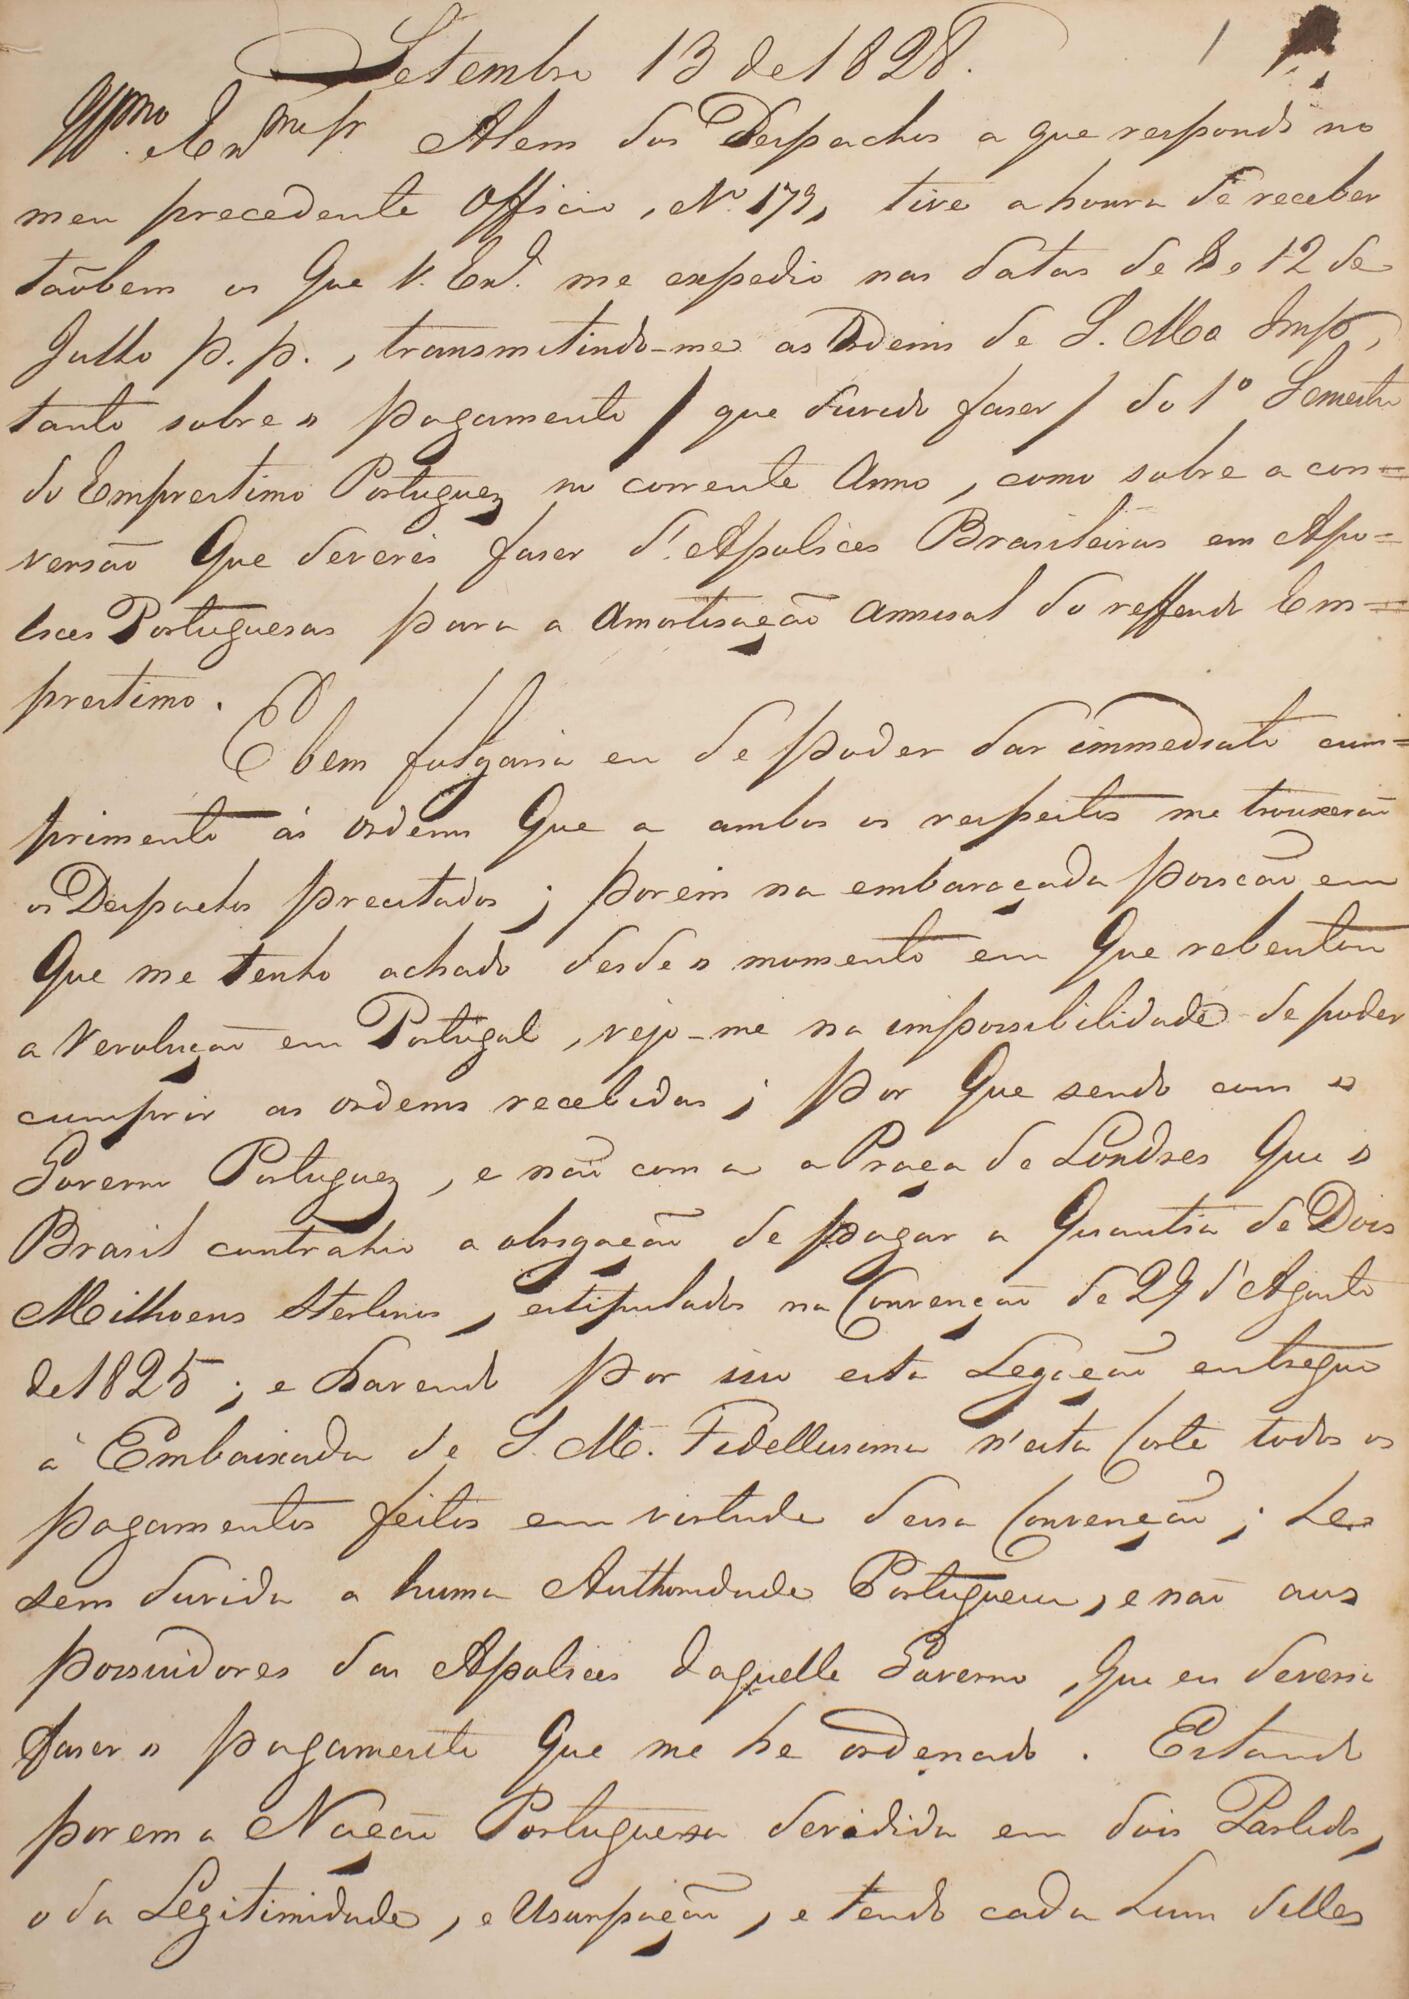 Setembro 13 de 1828. 1
Illmo. e Exmo. Sr. Alem dos Despachos a que respondi no
meu precedente Officio, N.º 179, tive a honra de receber
taõbem os Que V. Exª. me expedio nas datas de 8 e 12 de
Julho p. p., transmitindo-me as Ordens de S. M. o Impor,
tanto sobre o pagamento / que duvido faser / do 1º Semestre
do Emprestimo Portuguez no corrente Anno, como sobre a con=
versaõ Que deverei faser d'Apolices Brasileiras em Apo=
lices Portuguesas para a Amortisaçaõ Annual do refferido Em=
prestimo.
E bem folgaria eu de poder dar immediato cum=
primento ás ordens Que a ambos os respeitos me trouxeraõ
os Despachos precitados; porem na embaraçada posiçaõ em
Que me tenho achado desde o momento em Que rebentou
a Revoluçaõ em Portugal, vejo-me na impossibilidade de poder
cumprir as ordens recebidas; por Que sendo com o
Governo Portuguez, e naõ com a a Praça de Londres Que o
Brasil contrahio a obrigaçaõ de pagar a Quantia de Dois
Milhoens Sterlinos, estipulados na Convençaõ de 29 d'Agosto
de 1825; e havendo por isso esta Legaçaõ entregue
á Embaixada de S. M. Fidellissima n'esta Corte todos os
pagamentos feitos em virtude dessa Convençaõ; he
sem duvida a huma Authoridade Portugueza, e naõ aos
possuidores das Apolices daquelle Governo, Que eu deveria
faser o pagamento Que me he ordenado. Estando
porem a Naçaõ Portugueza devidida em dois Partidos,
o da Legitimidade, e Usurpaçaõ, e tendo cada hum delles